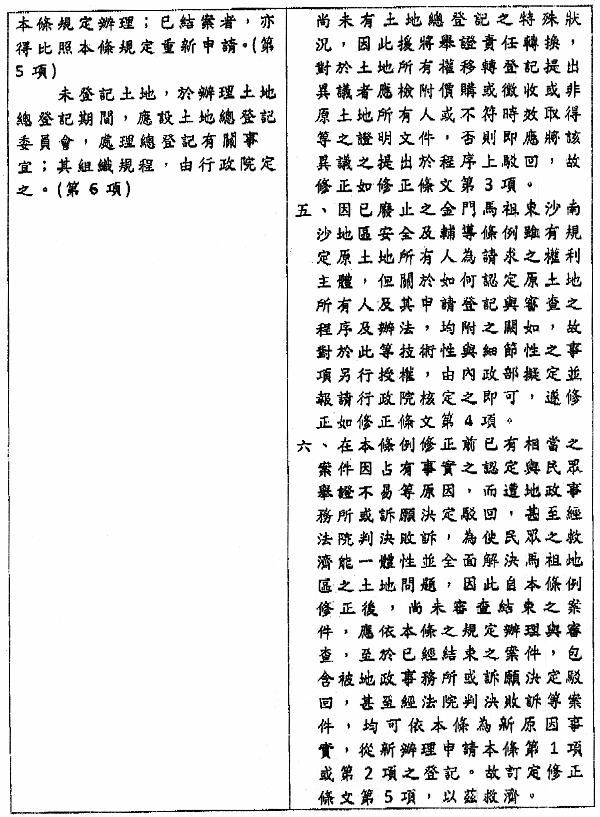 本條規定辦理；已結案者，亦
得比照本條規定重新申請。(第
5 項)
未登記土地，於辦理土地
總登記期間，應設土地總登記
委員會，處理總登記有關事
宜；其組織規程，由行政院定
之。(第 6 項)
尚未有土地總登記之特殊狀
況，因此援將舉證責任轉換，
對於土地所有權移轉登記提出
異議者應檢附價購或徵收或非
原土地所有人或不符時效取得
等之證明文件，否則即應將該
異議之提出於程序上駁回，故
修正如修正條文第 3 項。
五、因已廢止之金門馬祖東沙南
沙地區安全及輔導條例雖有規
定原土地所有人為請求之權利
主體，但關於如何認定原土地
所有人及其申請登記與審查之
程序及辦法，均附之闕如，故
對於此等技術性與細節性之事
項另行授權，由內政部擬定並
報請行政院核定之即可，遂修
正如修正條文第 4 項。
六、在本條例修正前已有相當之
案件因占有事實之認定與民眾
舉證不易等原因，而遭地政事
務所或訴願決定駁回，甚至經
法院判決敗訴，為使民眾之救
濟能一體性並全面解決馬祖地
區之土地問題，因此自本條例
修正後，尚未審查結束之案
件，應依本條之規定辦理與審
查，至於已經結束之案件，包
含被地政事務所或訴願決定駁
回，甚至經法院判決敗訴等案
件，均可依本條為新原因事
實，從新辦理申請本條第 1 項
或第 2 項之登記。故訂定修正
條文第 5 項，以茲救濟。